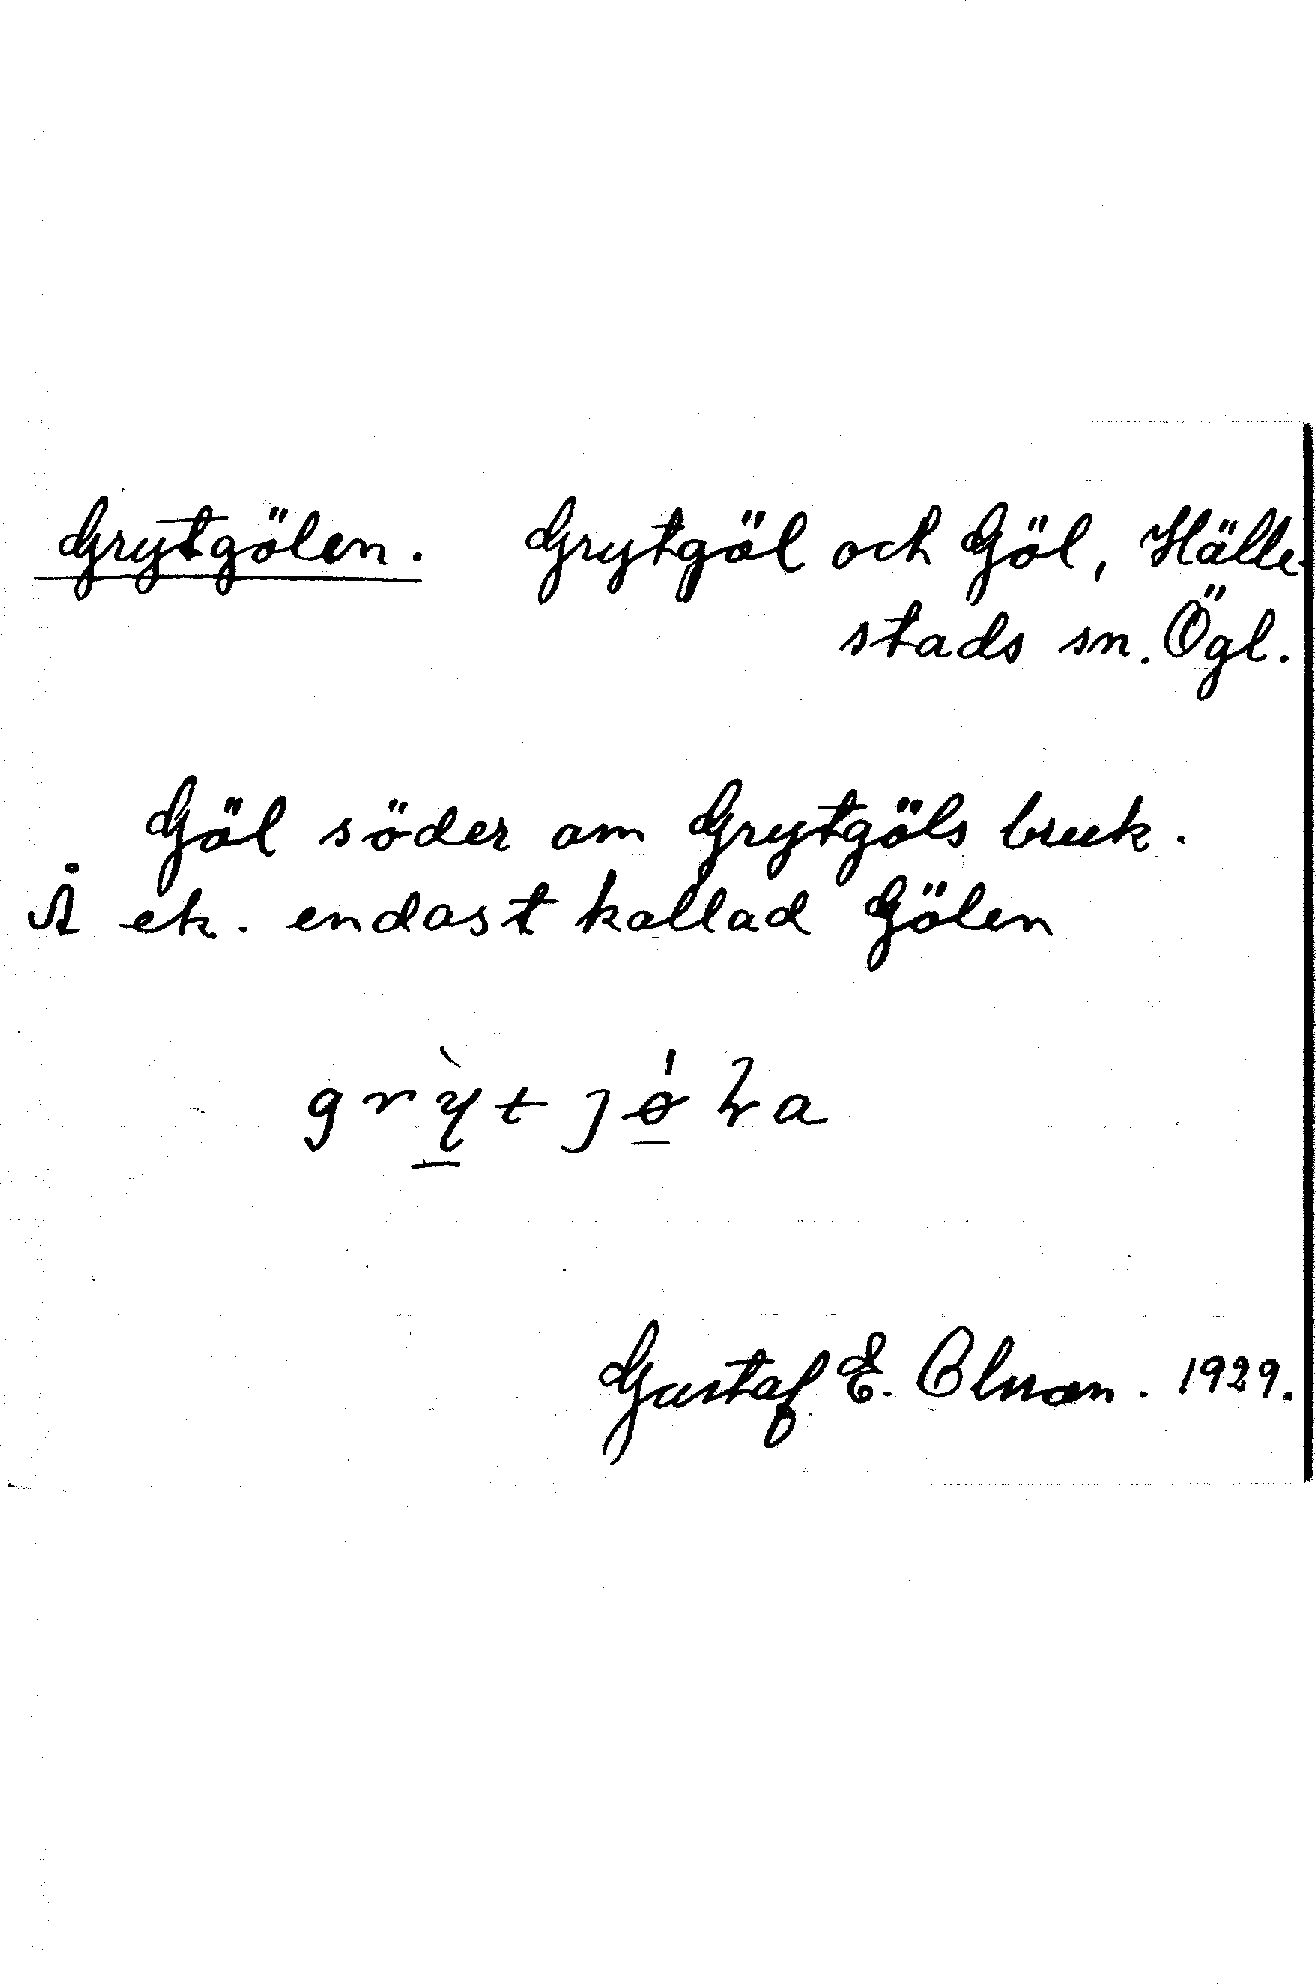 Grytgölen. Grytgöl och Göl, Hälle-
stads sn. Ögl.
Göl söder om Grytgöls bruk.
Å ek. endast kallad Gölen
grỳt jǿła
Gustaf E. Olman. 1929.